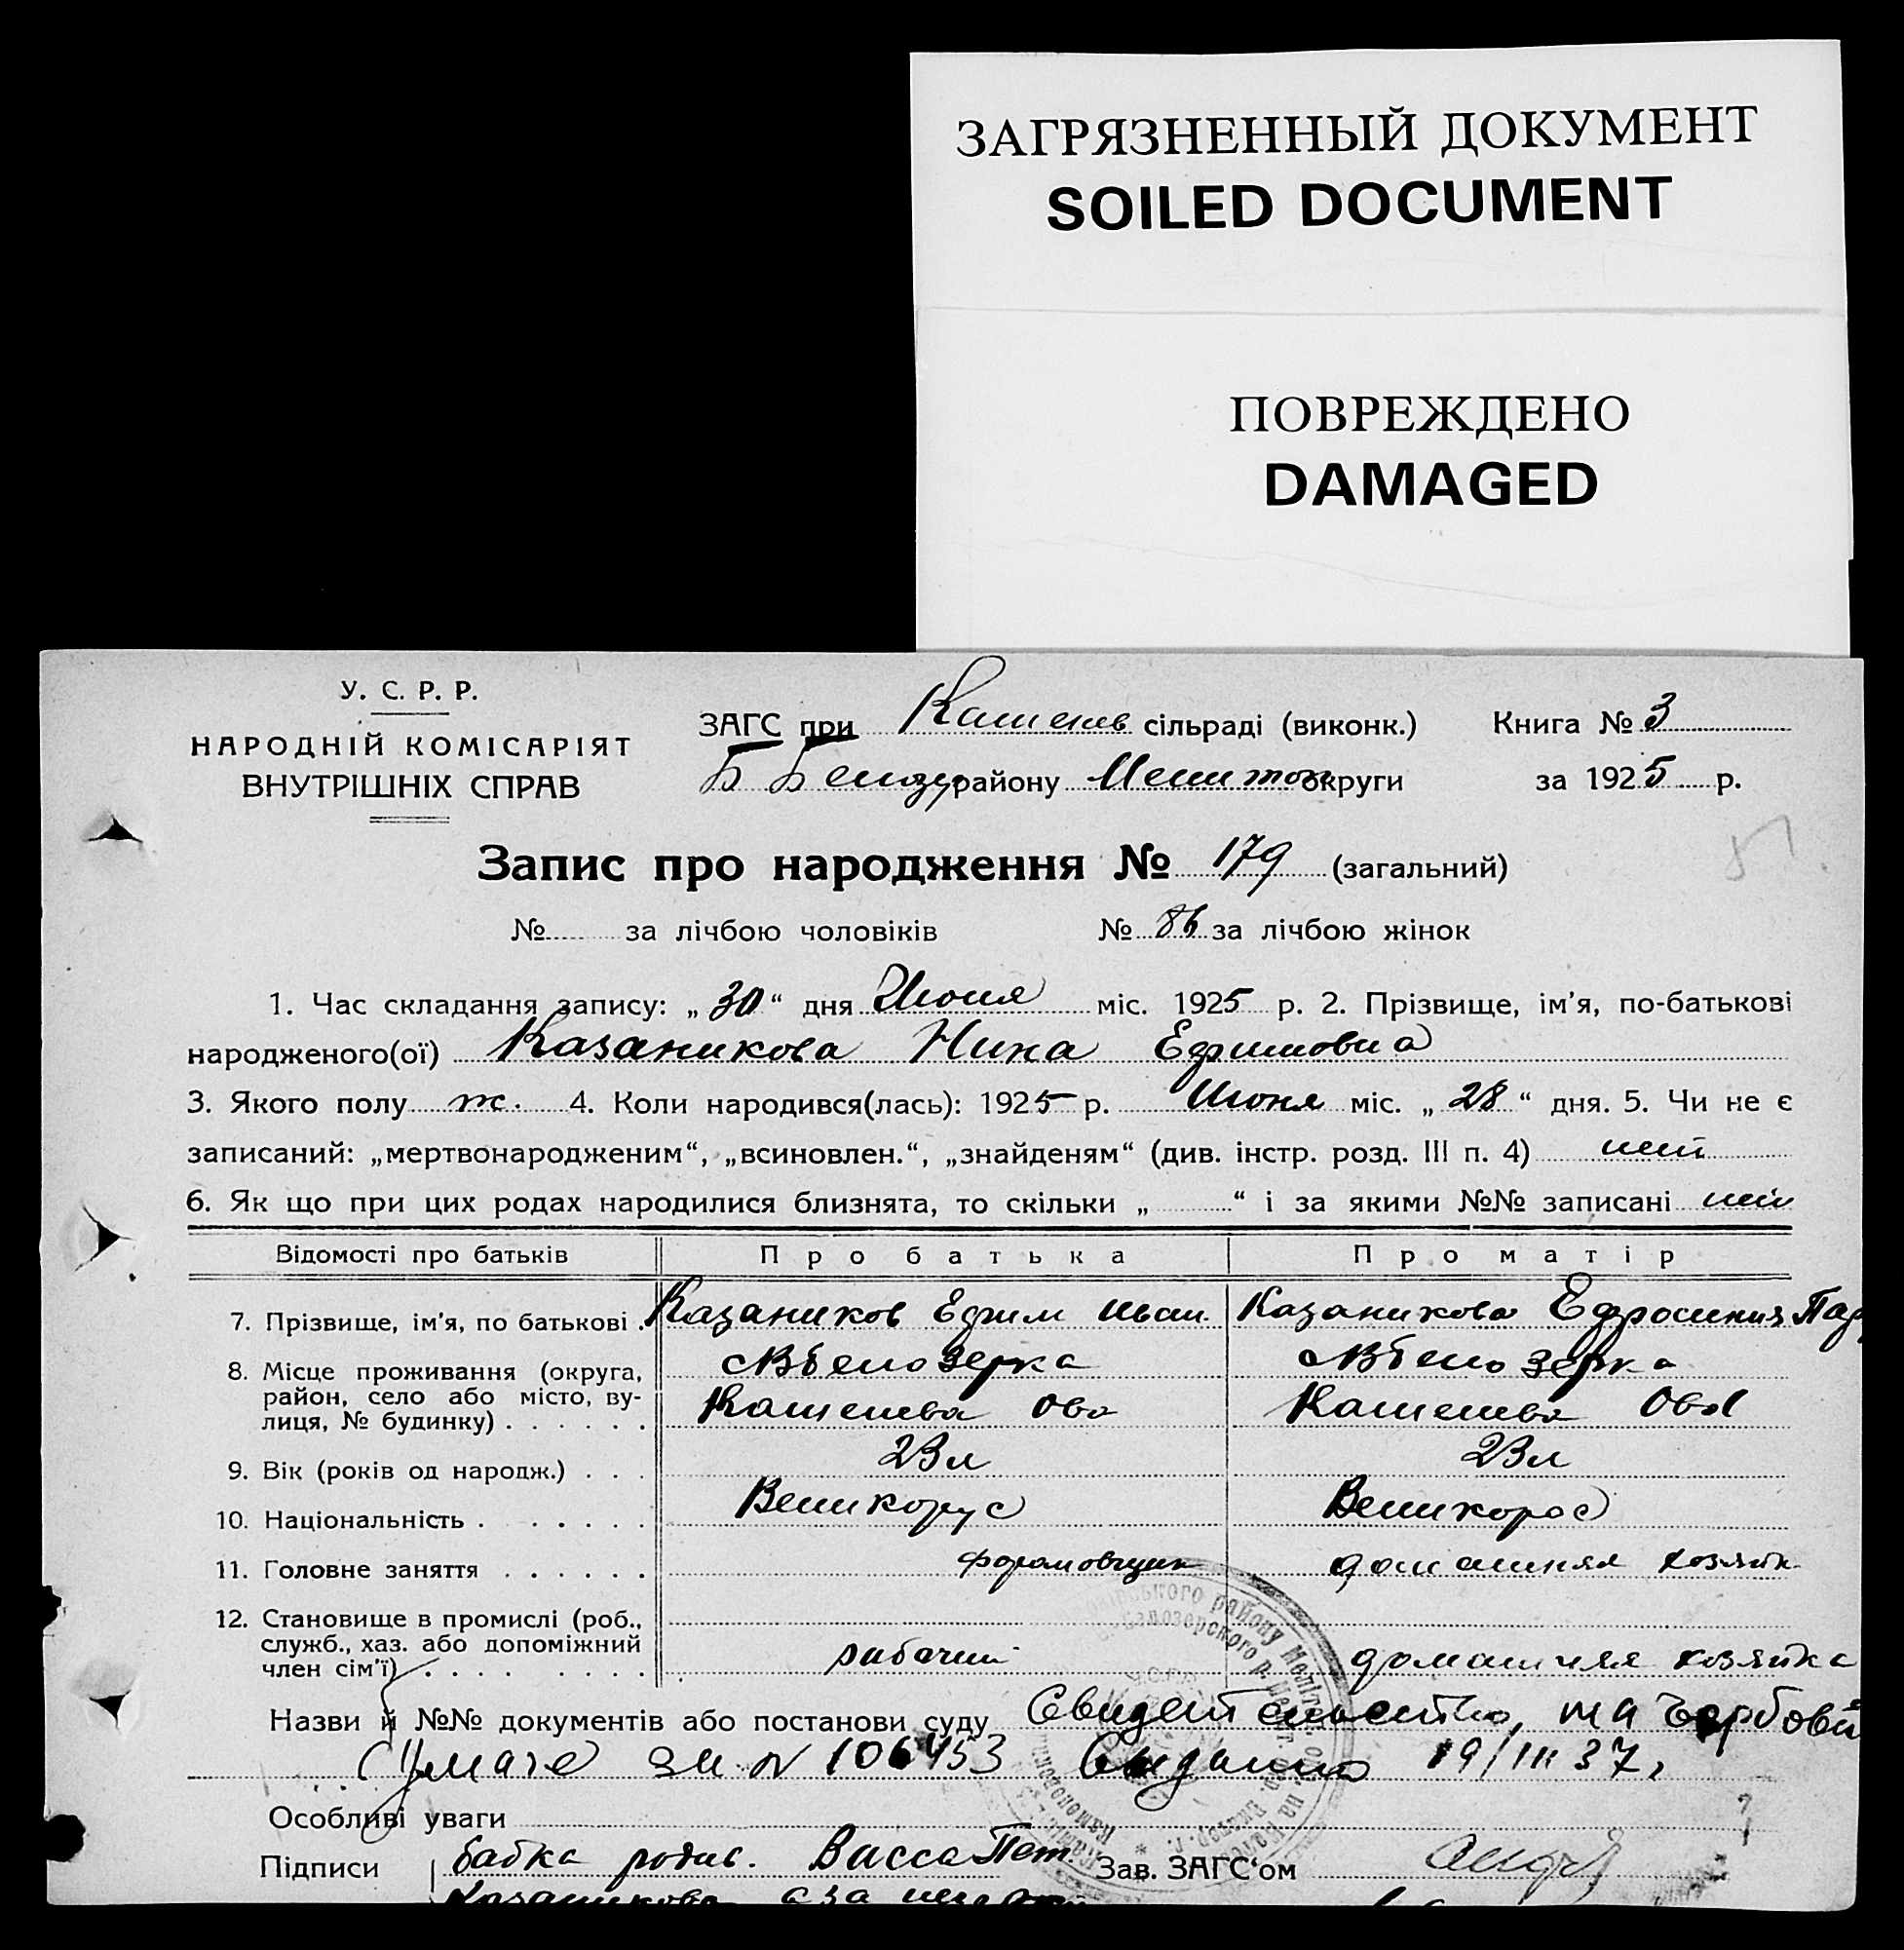 ЗАГРЯЗНЕННЫЙ ДОКУМЕНТ
SOILED DOCUMENT
ПОВРЕЖДЕНО
DAMAGED
У. С. Р. Р.
НАРОДНІЙ КОМІСАРІЯТ
ВНУТРІШНІХ СПРАВ
ЗАГС при Каменев сільраді (виконк.) Книга № 3
району округи за 1925 р.
Запис про народження № 179 (загальний)
№ за лічбою чоловіків № 86 за лічбою жінок
1. Час складання запису: „30“ дня Июня міс. 1925 р. 2. Прізвище, ім'я, по-батькові
народженого(ої) Казаникова Нина Ефимовна
3. Якого полу ж. 4. Коли народився(лась): 1925 р. Июня міс. „28“ дня. 5. Чи не є
записаний: „мертвонародженим“, „всиновлен.“, „знайденям“ (див. інстр. розд. III п. 4) нет
6. Як що при цих родах народилися близнята, то скільки „ “ і за якими №№ записані нет
Відомості про батьків Про батька Про матір
7. Прізвище, ім'я, по батькові . Казаников Ефим Иван. Казаникова Ефросиния Пар
8. Місце проживання (округа, район, село або місто, вулиця, № будинку) . . . . . .
Белозерка Белозерка
9. Вік (років од народж.) . . . 23 л 23 л
10. Національність . . . . . . Великорус Великорос
11. Головне заняття . . . . . . формовщик домашняя хозяйк
12. Становище в промислі (роб., служб., хаз. або допоміжний член сім'ї) . . . . . . . .
рабочий домашняя хозяйка
Назви й №№ документів або постанови суду Свидетельство на гербовй
бумаге за N 106453 Выданно 19/III 37 г
Особливі уваги
Підписи бабка родив. Васса Пет. Зав. ЗАГС'ом
Казаникова а за неграм